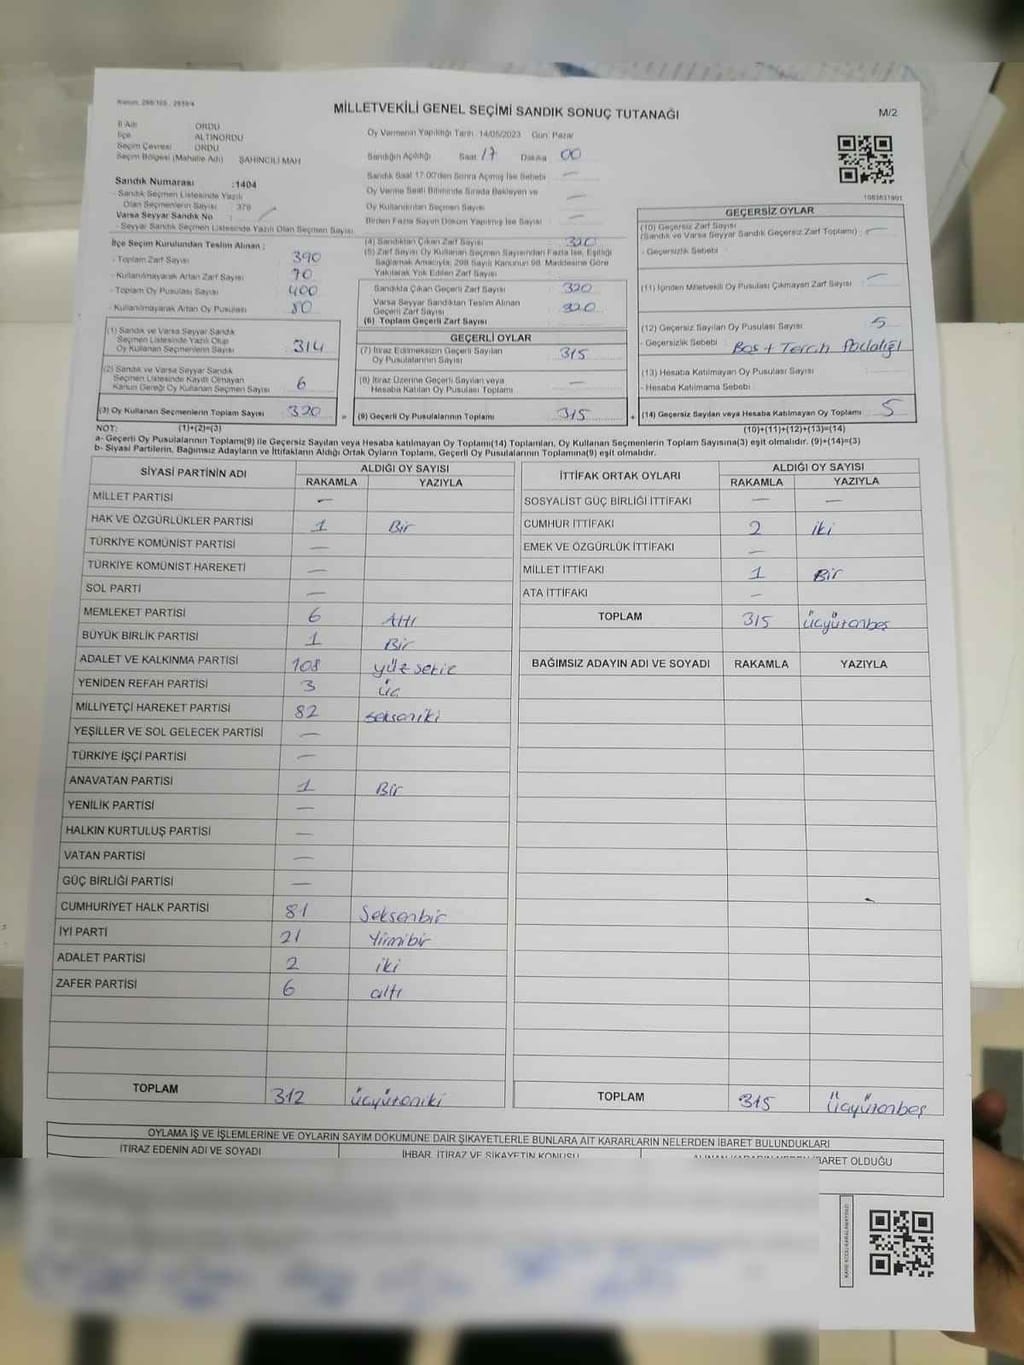 MİLLETVEKİLİ GENEL SEÇİMİ SANDIK SONUÇ TUTANAĞI
M/2
İl Adı : ORDU
İlçe : ALTINORDU
Seçim Çevresi : ORDU
Seçim Bölgesi (Mahalle Adı) : ŞAHİNCİLİ MAH
Sandık Numarası :1404
Sandık Seçmen Listesinde Yazılı
Olan Seçmenlerin Sayısı : 378
Varsa Seyyar Sandık No :
Seyyar Sandık Seçmen Listesinde Yazılı Olan Seçmen Sayısı
Oy Vermenin Yapıldığı Tarih : 14/05/2023 Gün: Pazar
Sandığın Açıldığı Saat 17 Dakika 00
Sandık Saat 17:00'den Sonra Açılmış İse Sebebi —
Oy Verme Saati Bitiminde Sırada Bekleyen ve
Oy Kullandırılan Seçmen Sayısı —
Birden Fazla Sayım Döküm Yapılmış İse Sayısı —
İlçe Seçim Kurulundan Teslim Alınan :
- Toplam Zarf Sayısı 390
- Kullanılmayarak Artan Zarf Sayısı 70
- Toplam Oy Pusulası Sayısı 400
- Kullanılmayarak Artan Oy Pusulası 80
(1) Sandık ve Varsa Seyyar Sandık
Seçmen Listesinde Yazılı Olup
Oy Kullanan Seçmenlerin Sayısı 314
(2) Sandık ve Varsa Seyyar Sandık
Seçmen Listesinde Kayıtlı Olmayan
Kanun Gereği Oy Kullanan Seçmen Sayısı 6
(3) Oy Kullanan Seçmenlerin Toplam Sayısı 320
(4) Sandıktan Çıkan Zarf Sayısı 320
(5) Zarf Sayısı Oy Kullanan Seçmen Sayısından Fazla İse, Eşitliği
Sağlamak Amacıyla, 298 Sayılı Kanunun 98. Maddesine Göre
Yakılarak Yok Edilen Zarf Sayısı
Sandıkta Çıkan Geçerli Zarf Sayısı 320
Varsa Seyyar Sandıktan Teslim Alınan
Geçerli Zarf Sayısı 320
(6) Toplam Geçerli Zarf Sayısı
GEÇERLİ OYLAR
(7) İtiraz Edilmeksizin Geçerli Sayılan
Oy Pusulalarının Sayısı 315
(8) İtiraz Üzerine Geçerli Sayılan veya
Hesaba Katılan Oy Pusulası Toplamı —
= (9) Geçerli Oy Pusulalarının Toplamı 315
1083831901
GEÇERSİZ OYLAR
(10) Geçersiz Zarf Sayısı
(Sandık ve Varsa Seyyar Sandık Geçersiz Zarf Toplamı) : —
- Geçersizlik Sebebi :
(11) İçinden Milletvekili Oy Pusulası Çıkmayan Zarf Sayısı : —
(12) Geçersiz Sayılan Oy Pusulası Sayısı : 5
- Geçersizlik Sebebi : Boş + Tercih Fazlalığı
(13) Hesaba Katılmayan Oy Pusulası Sayısı :
- Hesaba Katılmama Sebebi :
+ (14) Geçersiz Sayılan veya Hesaba Katılmayan Oy Toplamı 5
NOT: (1)+(2)=(3)
(10)+(11)+(12)+(13)=(14)
a- Geçerli Oy Pusulalarının Toplamı(9) ile Geçersiz Sayılan veya Hesaba katılmayan Oy Toplamı(14) Toplamları, Oy Kullanan Seçmenlerin Toplam Sayısına(3) eşit olmalıdır. (9)+(14)=(3)
b- Siyasi Partilerin, Bağımsız Adayların ve İttifakların Aldığı Ortak Oyların Toplamı, Geçerli Oy Pusulalarının Toplamına(9) eşit olmalıdır.
SİYASİ PARTİNİN ADI ALDIĞI OY SAYISI
RAKAMLA YAZIYLA
MİLLET PARTİSİ —
HAK VE ÖZGÜRLÜKLER PARTİSİ 1 Bir
TÜRKİYE KOMÜNİST PARTİSİ —
TÜRKİYE KOMÜNİST HAREKETİ —
SOL PARTİ —
MEMLEKET PARTİSİ 6 Altı
BÜYÜK BİRLİK PARTİSİ 1 Bir
ADALET VE KALKINMA PARTİSİ 108 yüzsekiz
YENİDEN REFAH PARTİSİ 3 üç
MİLLİYETÇİ HAREKET PARTİSİ 82 Sekseniki
YEŞİLLER VE SOL GELECEK PARTİSİ —
TÜRKİYE İŞÇİ PARTİSİ —
ANAVATAN PARTİSİ 1 Bir
YENİLİK PARTİSİ —
HALKIN KURTULUŞ PARTİSİ —
VATAN PARTİSİ —
GÜÇ BİRLİĞİ PARTİSİ —
CUMHURİYET HALK PARTİSİ 81 Seksenbir
İYİ PARTİ 21 Yirmibir
ADALET PARTİSİ 2 iki
ZAFER PARTİSİ 6 altı
TOPLAM 312 üçyüzoniki
İTTİFAK ORTAK OYLARI ALDIĞI OY SAYISI
RAKAMLA YAZIYLA
SOSYALİST GÜÇ BİRLİĞİ İTTİFAKI — —
CUMHUR İTTİFAKI 2 iki
EMEK VE ÖZGÜRLÜK İTTİFAKI —
MİLLET İTTİFAKI 1 Bir
ATA İTTİFAKI —
TOPLAM 315 üçyüzonbeş
BAĞIMSIZ ADAYIN ADI VE SOYADI RAKAMLA YAZIYLA
TOPLAM 315 üçyüzonbeş
OYLAMA İŞ VE İŞLEMLERİNE VE OYLARIN SAYIM DÖKÜMÜNE DAİR ŞİKAYETLERLE BUNLARA AİT KARARLARIN NELERDEN İBARET BULUNDUKLARI
İTİRAZ EDENİN ADI VE SOYADI
İHBAR, İTİRAZ VE ŞİKAYETİN KONUSU
İBARET OLDUĞU